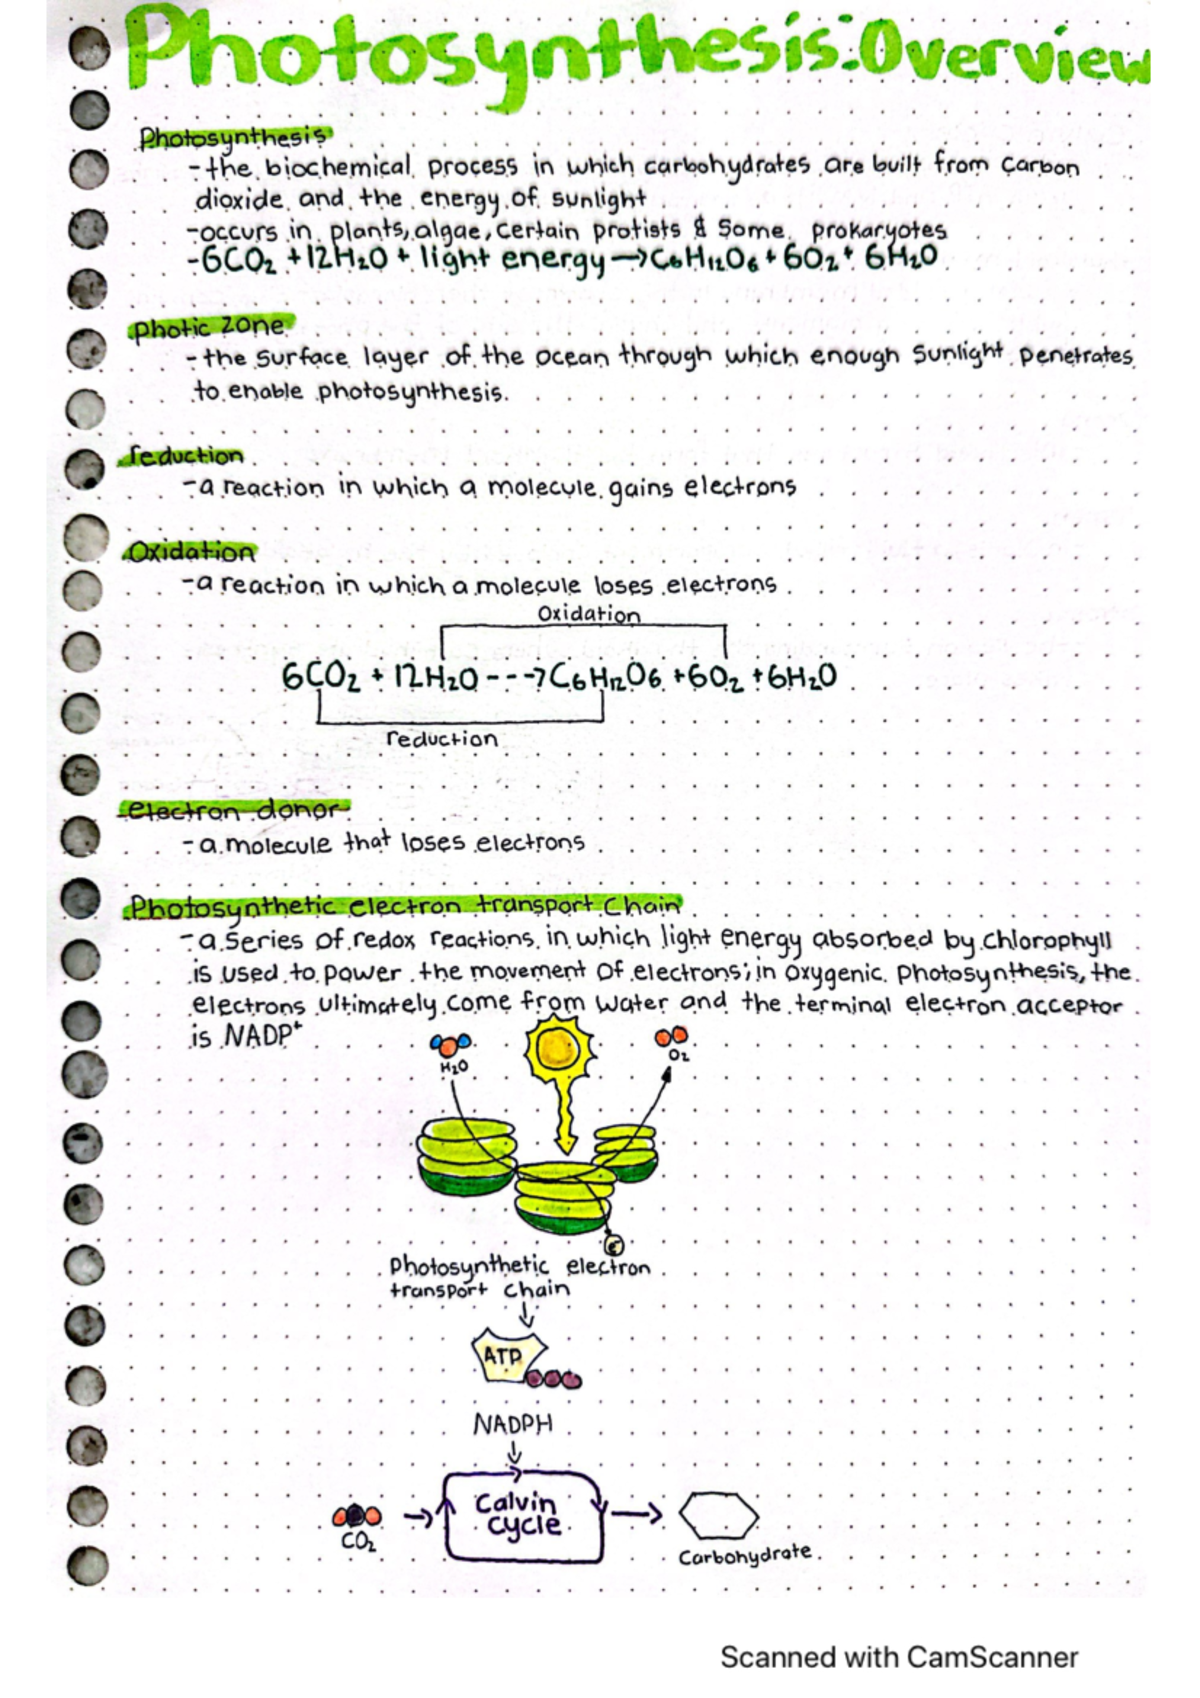 Photosynthesis: Overview
Photosynthesis
- the biochemical process in which carbohydrates are built from carbon
dioxide and the energy of sunlight
- occurs in plants, algae, certain protists & some prokaryotes
- 6CO₂ + 12H₂O + light energy → C₆H₁₂O₆ + 6O₂ + 6H₂O
Photic zone
- the surface layer of the ocean through which enough sunlight penetrates
to enable photosynthesis.
reduction
- a reaction in which a molecule gains electrons
Oxidation
- a reaction in which a molecule loses electrons
Oxidation
6CO₂ + 12H₂O ---> C₆H₁₂O₆ + 6O₂ + 6H₂O
reduction
electron donor
- a molecule that loses electrons
Photosynthetic electron transport Chain
- a series of redox reactions in which light energy absorbed by chlorophyll
is used to power the movement of electrons; in oxygenic photosynthesis, the
electrons ultimately come from water and the terminal electron acceptor
is NADP⁺
H₂O
O₂
e⁻
Photosynthetic electron
transport chain
ATP
NADPH
Calvin
cycle
CO₂
Carbohydrate
Scanned with CamScanner